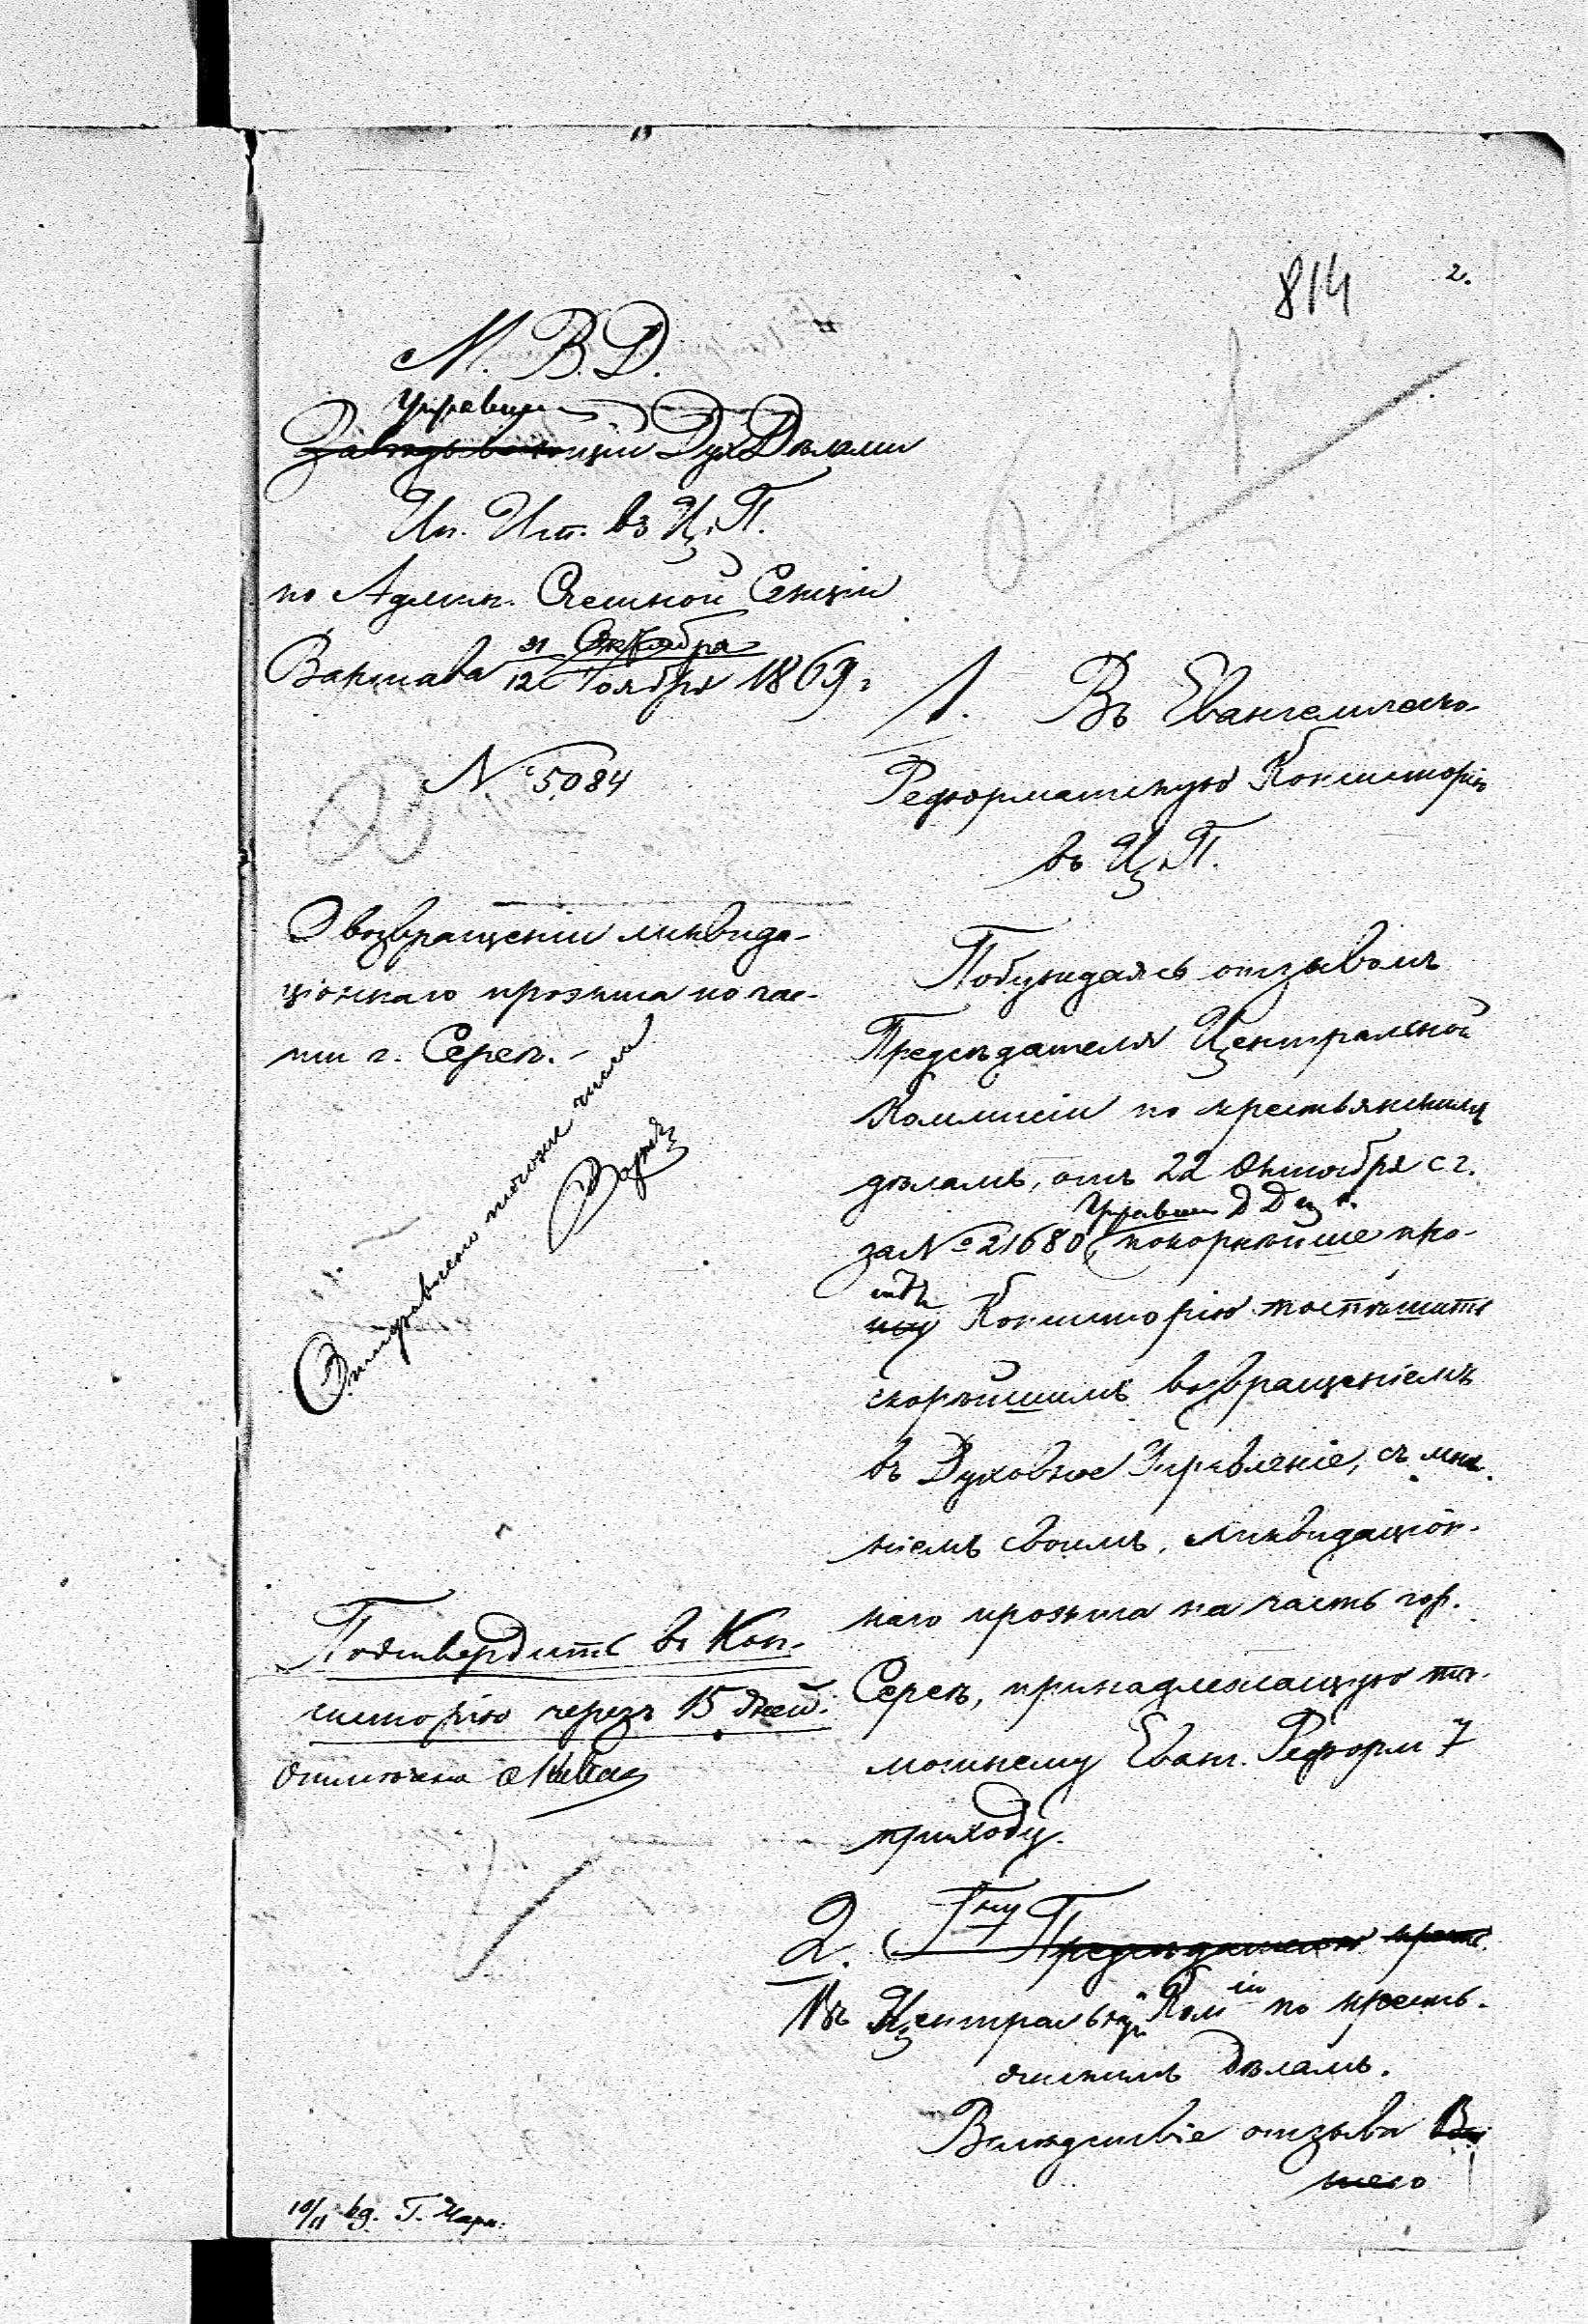 814
2.
М. В. Д.
Управляю
Завѣдывающій Дух Дѣлами
Ин. Исп. въ Ц. П.
по Админ. Счетной Секціи
Варшава 31 Октября
12 Ноября 1869 г
№ 5084
О возвращеніи ликвида-
ціоннаго проэкта по час-
ти г. Серее. -
Отправлено тогоже числа
Подтвердить въ Кон-
систорію черезъ 15 дней.
Отмѣчено
10/11 69. Г. Нарк.
1. Въ Евангелическо-
Реформатскую Консисторію
въ Ц. П.
Побуждаясь отзывомъ
Предсѣдателя Центральной
Коммисіи по крестьянскимъ
дѣламъ, отъ 22 Октября с г.
Управлен Д Д
за № 21680 покорнѣйше про-
ситъ
шу Консисторію поспѣшить
скорѣйшимъ возвращеніемъ
въ Духовное Управленіе, съ мнѣ-
ніемъ своимъ, ликвидаціон-
наго проэкта на часть гор.
Серее, принадлежащую та-
мошнему Еванг. Реформ
приходу.
2. Гну Предсѣдателю крест.
Въ Центральную Ком ію по кресть-
янскимъ дѣламъ.
Вслѣдствіе отзыва Ва
шего